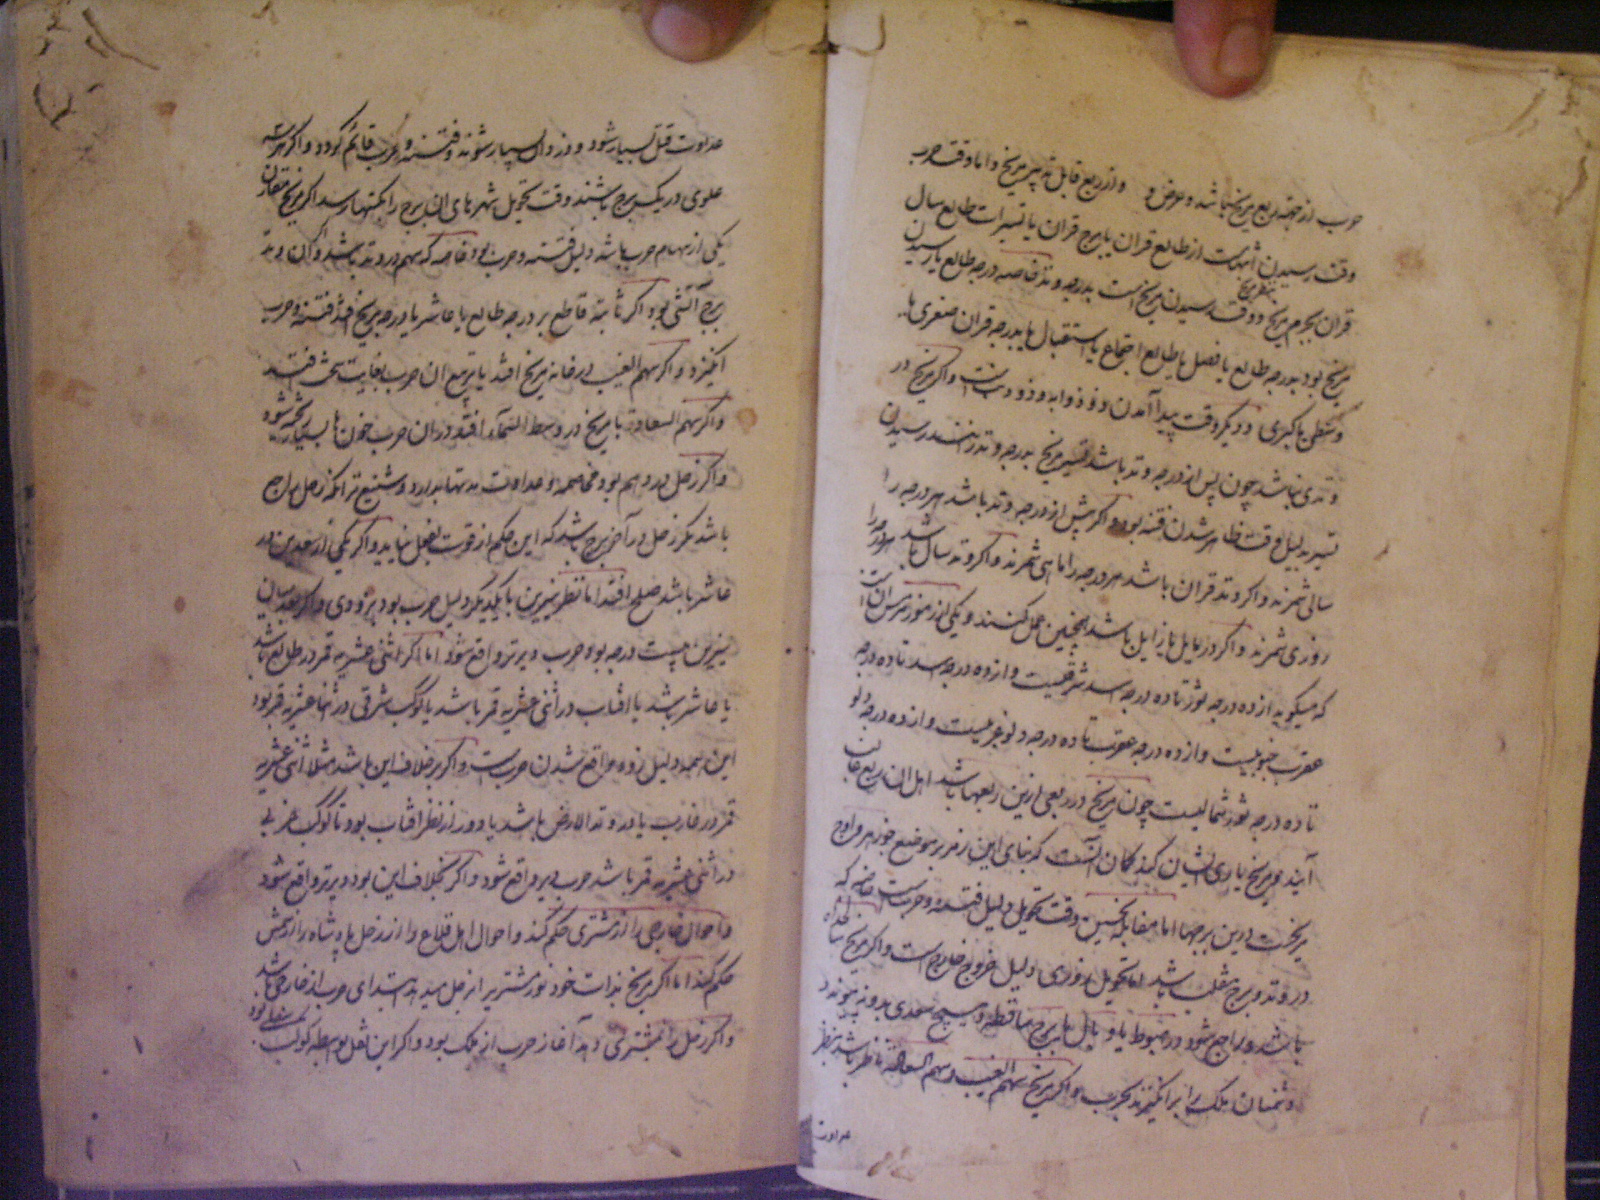 حرب از جهت ربع مریخ باشد و عرض و و از ربع قابل تدبیر مریخ و اما وقت حرب
وقت رسیدن انتهاست از طالع قران یا برج قران یا تسییرات طالع سال
قران بجرم مریخ و وقت رسیدن مریخ است بدرجه وتد خاصه درجه طالع یا رسیدن
بنظر مریخ
مریخ بود بدرجه طالع یا فصل یا طالع اجتماع یا استقبال یا بدرجه قران صغری یا
وسطی یا کبری و دیگر وقت پیدا آمدن و ذوذوابه و ذوذنب است و اگر مریخ در
وتدی باشد چون پس از درجه وتد باشد تسییر مریخ بدرجه وتد رسد رسیدن
تسییر دلیل وقت ظاهر شدن فتنه بود و اگر پیش از درجه وتد باشد هر درجه را
سالی شمرند و اگر وتد قران باشد هر درجه را ماهی شمرند و اگر وتد سال باشد هر درجه را
روزی شمرند و اگر در مایل یا زایل باشد همچنین عمل کنند و یکی از رموز هرمس آن است
که میگوید از ده درجه ثور تا ده درجه اسد شرقیست و از ده درجه اسد تا ده درجه
عقرب جنوبیست و از ده درجه عقرب تا ده درجه دلو غربیست و از ده درجه دلو
تا ده درجه ثور شمالیست چون مریخ در ربعی ازین ربعها باشد اهل آن ربع غالب
آیند و مریخ یاری ایشان کند گمان آنست که بنای این رمز بر موضع جوزهر و اوج
مریخست درین برجها اما مقابله نحسین وقت تحویل دلیل فتنه و حربست خاصه که
در وتد و برج منقلب باشد اما تحویل دلیل خروج خارجیست و اگر مریخ
باشد و راجع شود در هبوط یا وبال یا برج ساقط و هیچ سعدی بدو نپیوندد
دشمنان ملک را برانگیزند بحرب و اگر مریخ بسهم الغیب و سهم السعاده ناظر باشد بنظر
عداوت
عداوت قتل بسیار شود و دزدان بسیار شوند و فتنه و حرب قائم گردد و اگر هر سه
علوی در یک برج باشند وقت تحویل شهرهای آن برج را نکبتها رسد اگر مریخ مقارن
یکی از سهام حرب باشد دلیل فتنه و حرب بود خاصه که سهم در وتد باشد و آن وتد
برج آتشی بود اگر ثابته قاطع بر درجه طالع یا عاشر یا درجه مریخ افتد فتنه و حرب
انگیزد و اگر سهم الغیب در خانه مریخ افتد یا تربیع آن حرب بغایت سخت افتد
و اگر سهم السعاده با مریخ در وسط السماء افتد در آن حرب خون بسیار ریخته شود
و اگر زحل در دهم بود مخاصمه و عداوت مدتها بدارد و شنیع تر آنکه زحل راجع
باشد مگر زحل در آخر برج باشد که این حکم از قوت بفعل نیاید و اگر یکی از سعدین در
عاشر باشد صلح افتد اما نظر نیرین با یکدیگر دلیل حرب بود بزودی و اگر بعد میان
نیرین بیست درجه بود حرب دیرتر واقع شود اما اگر اثنی عشریه قمر در طالع باشد
یا عاشر باشد یا آفتاب در اثنی عشریه قمر باشد یا کوکب شرقی در اثنا عشریه قمر بود
این همه دلیل زود واقع شدن حربست و اگر برخلاف این باشد مثلا اثنی عشریه
قمر در غارب یا در وتد الارض باشد یا دور از نظر آفتاب بود تا کوکب غربی
در اثنی عشریه قمر باشد حرب دیر واقع شود و اگر بخلاف این بود دیرتر واقع شود
و احوال خارجی را از مشتری حکم کند و احوال اهل قلاع و از زحل پادشاه را از شمس
حکم کند اما اگر مریخ بذات خود نور مشتری بزحل میدهد ابتدای حرب از خارجی باشد
و اگر زحل را بمشتری دهد آغاز حرب از ملک بود و اگر این نقل بواسطه کوکب